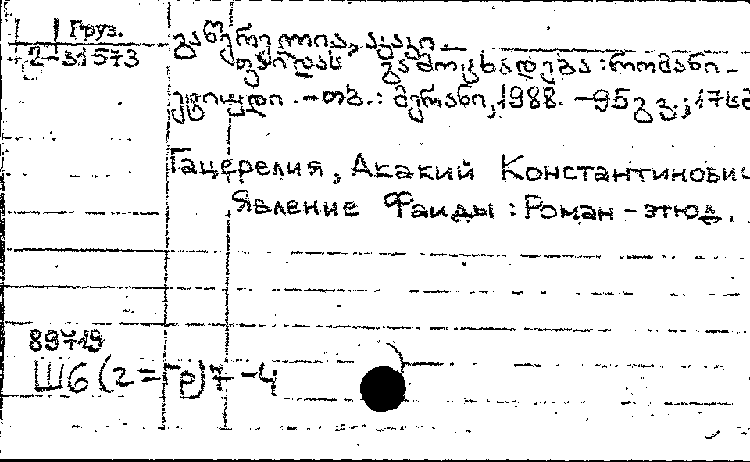 Груз.
2-31573
გაწერელია, აკაკი.
ფაიდას გამოცხადება : რომანი-
ეტიუდი. - თბ.: მერანი, 1988. - 95 გვ.; 17სმ
Гацерелия, Акакий Константинович
Явление Фаиды : Роман-этюд.
89719
Ш6(2=Гр)7-4